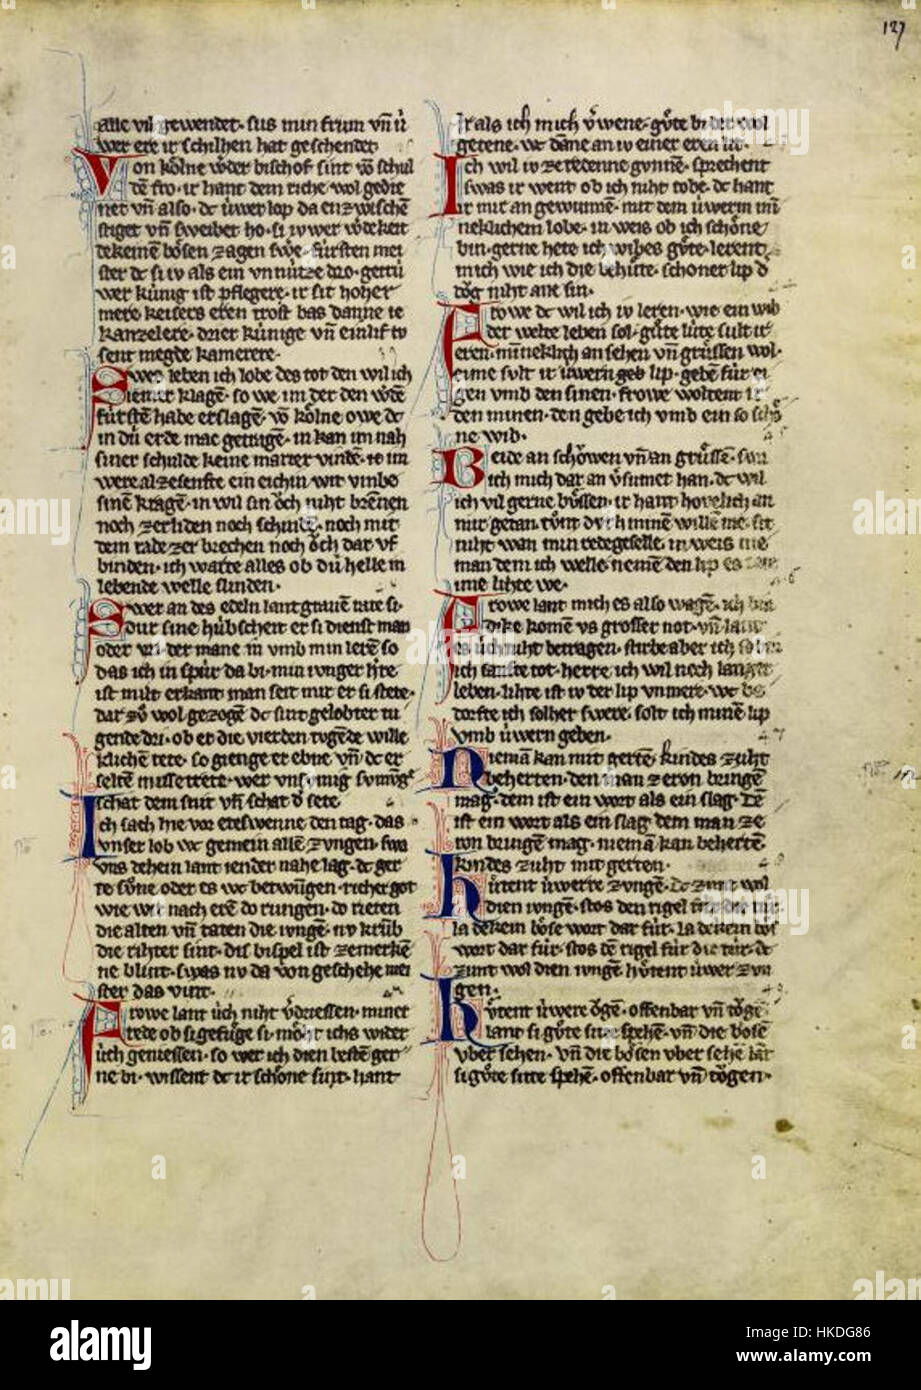 127
alle vil gewendet · sus min frum vn̄ ů
wer ere ir schilhen hat geschendet
Von kölne w̾der bischof sint vō schul
dē fro · ir hant dem riche wol gedie
net vn̄ also · dc ůwer lop da enzwischē
stiget vn̄ sweibet ho · si iv wer w̾dekeit
dekeinē bösen zagen swe · fúrsten mei
ster dc si iv als ein vnnútze dro · getrú
wer kúnig ist pflegere · ir sit hoher
mere keisers eren trost bas danne ie
kanzelere · drier kúnige vn̄ einlif tv
sent megde kamerere ·
Swes leben ich lobe des tot den wil ich
iemer klagē · so we im der den w̾dē
fúrstē habe erslagē · vō kölne owe dc
in dú erde mac getragē · in kan im nah
siner schulde keine marter vindē · ie im
were al ze senfte ein eichin wit vmbe
sinē kragē · in wil sin öch niht brēnen
noch zerliden noch schinde · noch mit
dem rade zer brechen noch öch dar vf
binden · ich warte alles ob dú helle in
lebende welle slunden ·
Swer an des edeln lantgrauē rate si ·
dur sine húbscheit er si dienst man
oder der mane in vmb min lerē so
das ich in spúr da bi · min iunger h̾re
ist milt erkant man seit mir er si stete ·
dar zů wol gezogē dc sint gelobter tu
gende dri · ob er die vierden tvgēde wille
klichen tete · so gienge er ebne vn̄ dc er
seltē missetrete · wer vnsumig
schat dem snit vn̄ schat d̾ sete
Ich sach hie vor eteswenne den tag · das
vnser lob wc gemein allē zvngen · swa
vns dehein lant iender nahe lag · dc ger
te sōne oder es wc betwūgen · richer got
wie wir nach erē do rungen · do rieten
die alten vn̄ taten die iungē · nv krúb
die rihter sint · dis bispel ist zemerkē
ne blint · swas nv da von geschehe mei
ster das vint ·
Frowe lant úch niht v̾driessen · miner
rede ob si gefúge si · möht ichs wider
úch geniessen · so wer ich dien besten ger
ne bi · wissent dc ir schöne sint · hant
Ir als ich mich v̾wene · gůte bi dir wol
getene · wc dāne an iv einer eren lit ·
Ich wil iv ze redenne gvnnē · sprechent
swas ir went ob ich niht tobe · dc hant
ir mir an gewunnē · mit dem úwerm mī
neklichem lobe · in weis ob ich schöne
bin · gerne hete ich wibes gůte · lerent
mich wie ich die behúte · schoner lip d̾
tög niht ane sin ·
Frowe dc wil ich iv leren · wie ein wib
der welte leben sol · gůte lúte sult ir
eren · mīneklich an sehen vn̄ grůssen wol ·
eime sult ir úwern geb lip · gebē fúr ei
gen vmb den sinen · frowe woltent ir
den minen · den gebe ich vmb ein so schö
ne wib ·
Beide an schöwen vn̄ an grůssē · swa
ich mich dar an v̾sumet han · dc wil
ich vil gerne bůssen · ir hant hovelich an
mir getan · tůnt dvrh minē willē me · sit
niht wan min redegeselle · in weis nie
man dem ich welle nemē den lip es
ime lihte we ·
Frowe lant mich es also wagē · ich bin
dike komē vs grosser not · vn̄ lant
es úch niht betragen · stirbe aber ich so bin
ich sanfte tot · herre ich wil noch langer
leben · lihte ist iv der lip vnmere · wc be
dorfte ich solher swere · solt ich minē lip
vmb úwern geben ·
Niemā kan mit gertē · kindes zuht
beherten · den man zeron bringē
mag · dem ist ein wort als ein slag · Dē
ist ein wort als ein slag dem man ze
ron bringen mag · niemā kan behertē
kindes zuht mit gerten ·
Hůtent úwerre zvngē · dc zimt wol
dien iungē · stos den rigel fúr die túr
la dekein böse wort dar fúr · la dekein bös
wort dar fúr · stos dē rigel fúr die túr · dc
zimt wol dien iungē hůtent úwer zvn
gen ·
Hůtent úwere ögē · offenbar vn̄ tögē
lant si gůte sitte spehē · vn̄ die bösē
vber sehen · vn̄ die bösen vber sehē lāt
si gůte sitte spehē · offenbar vn̄ tögen ·
alamy
a
alamy
Image ID: HKDG86
www.alamy.com